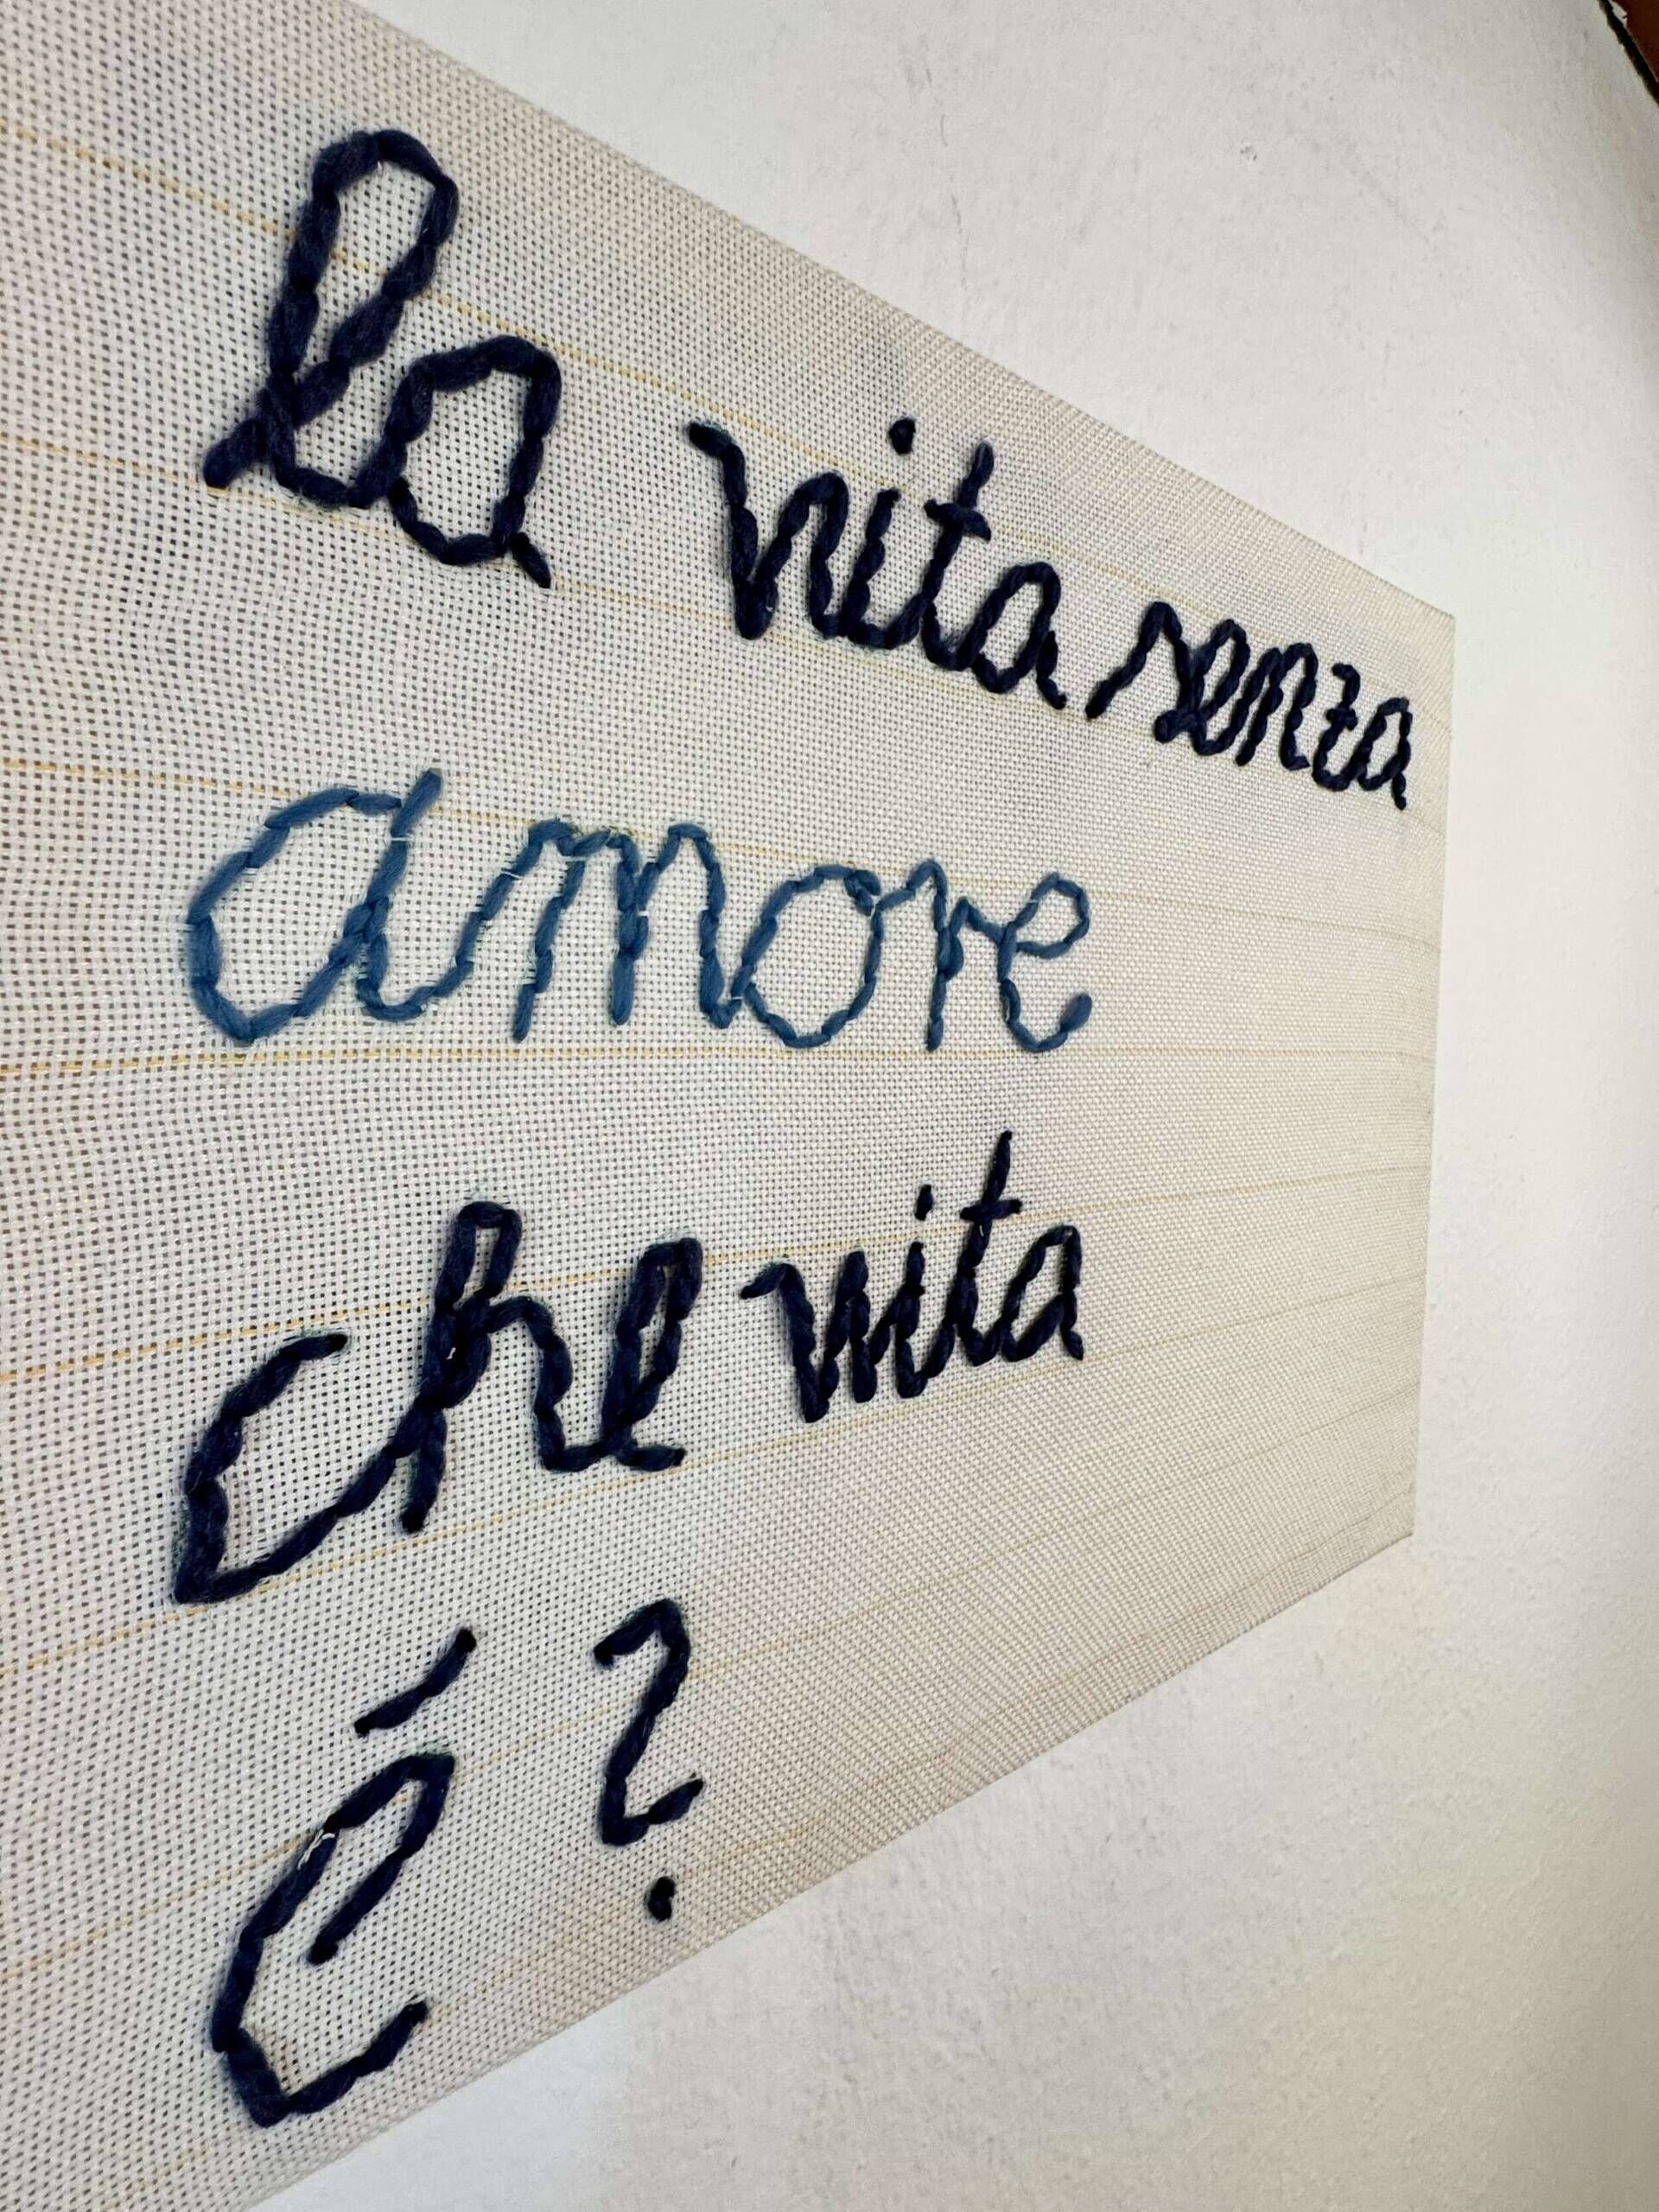 la vita senza
amore
che vita
é ?